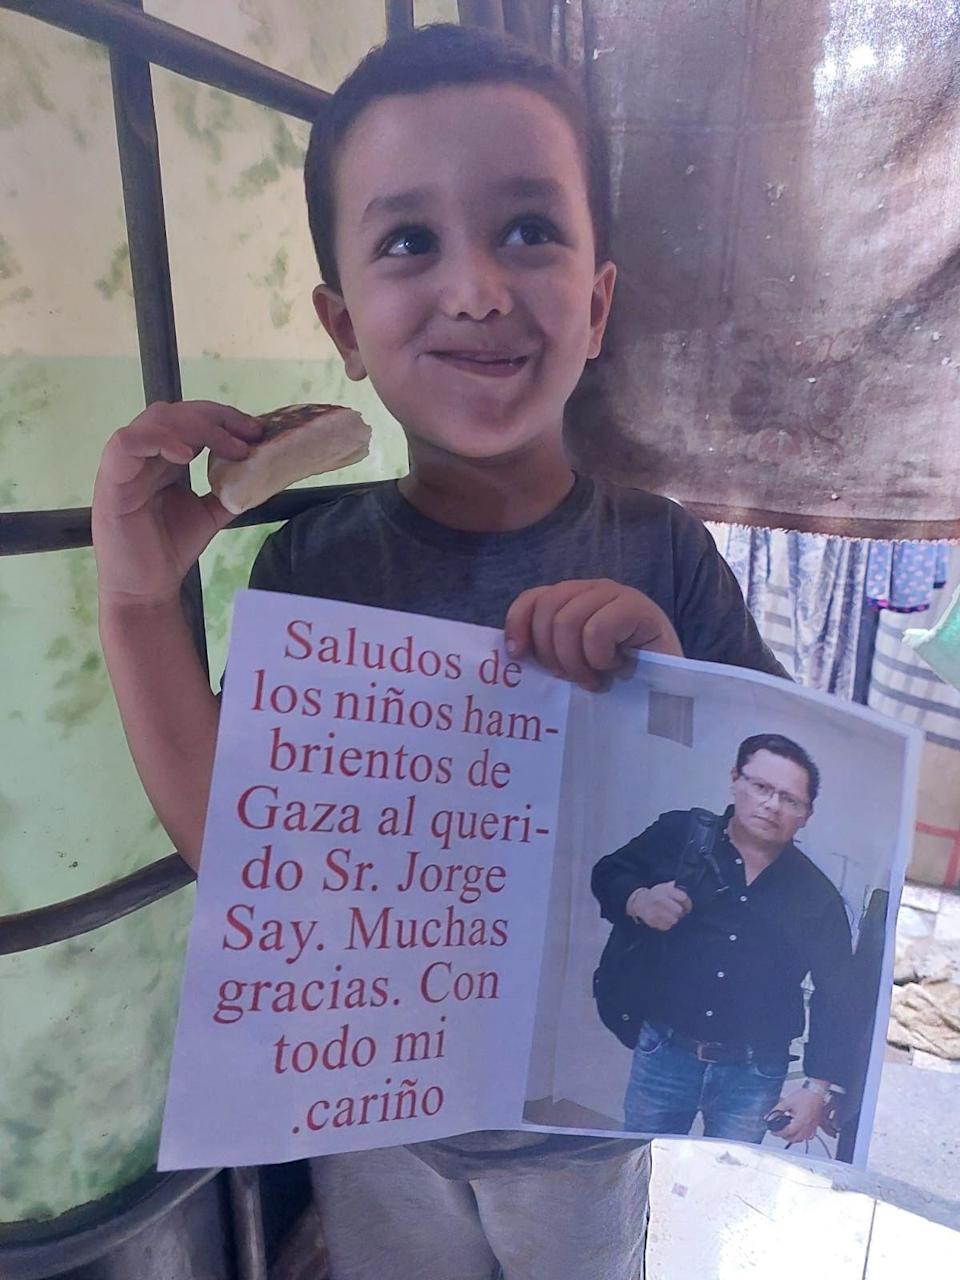 Saludos de
los niños ham-
brientos de
Gaza al queri-
do Sr. Jorge
Say. Muchas
gracias. Con
todo mi
.cariño